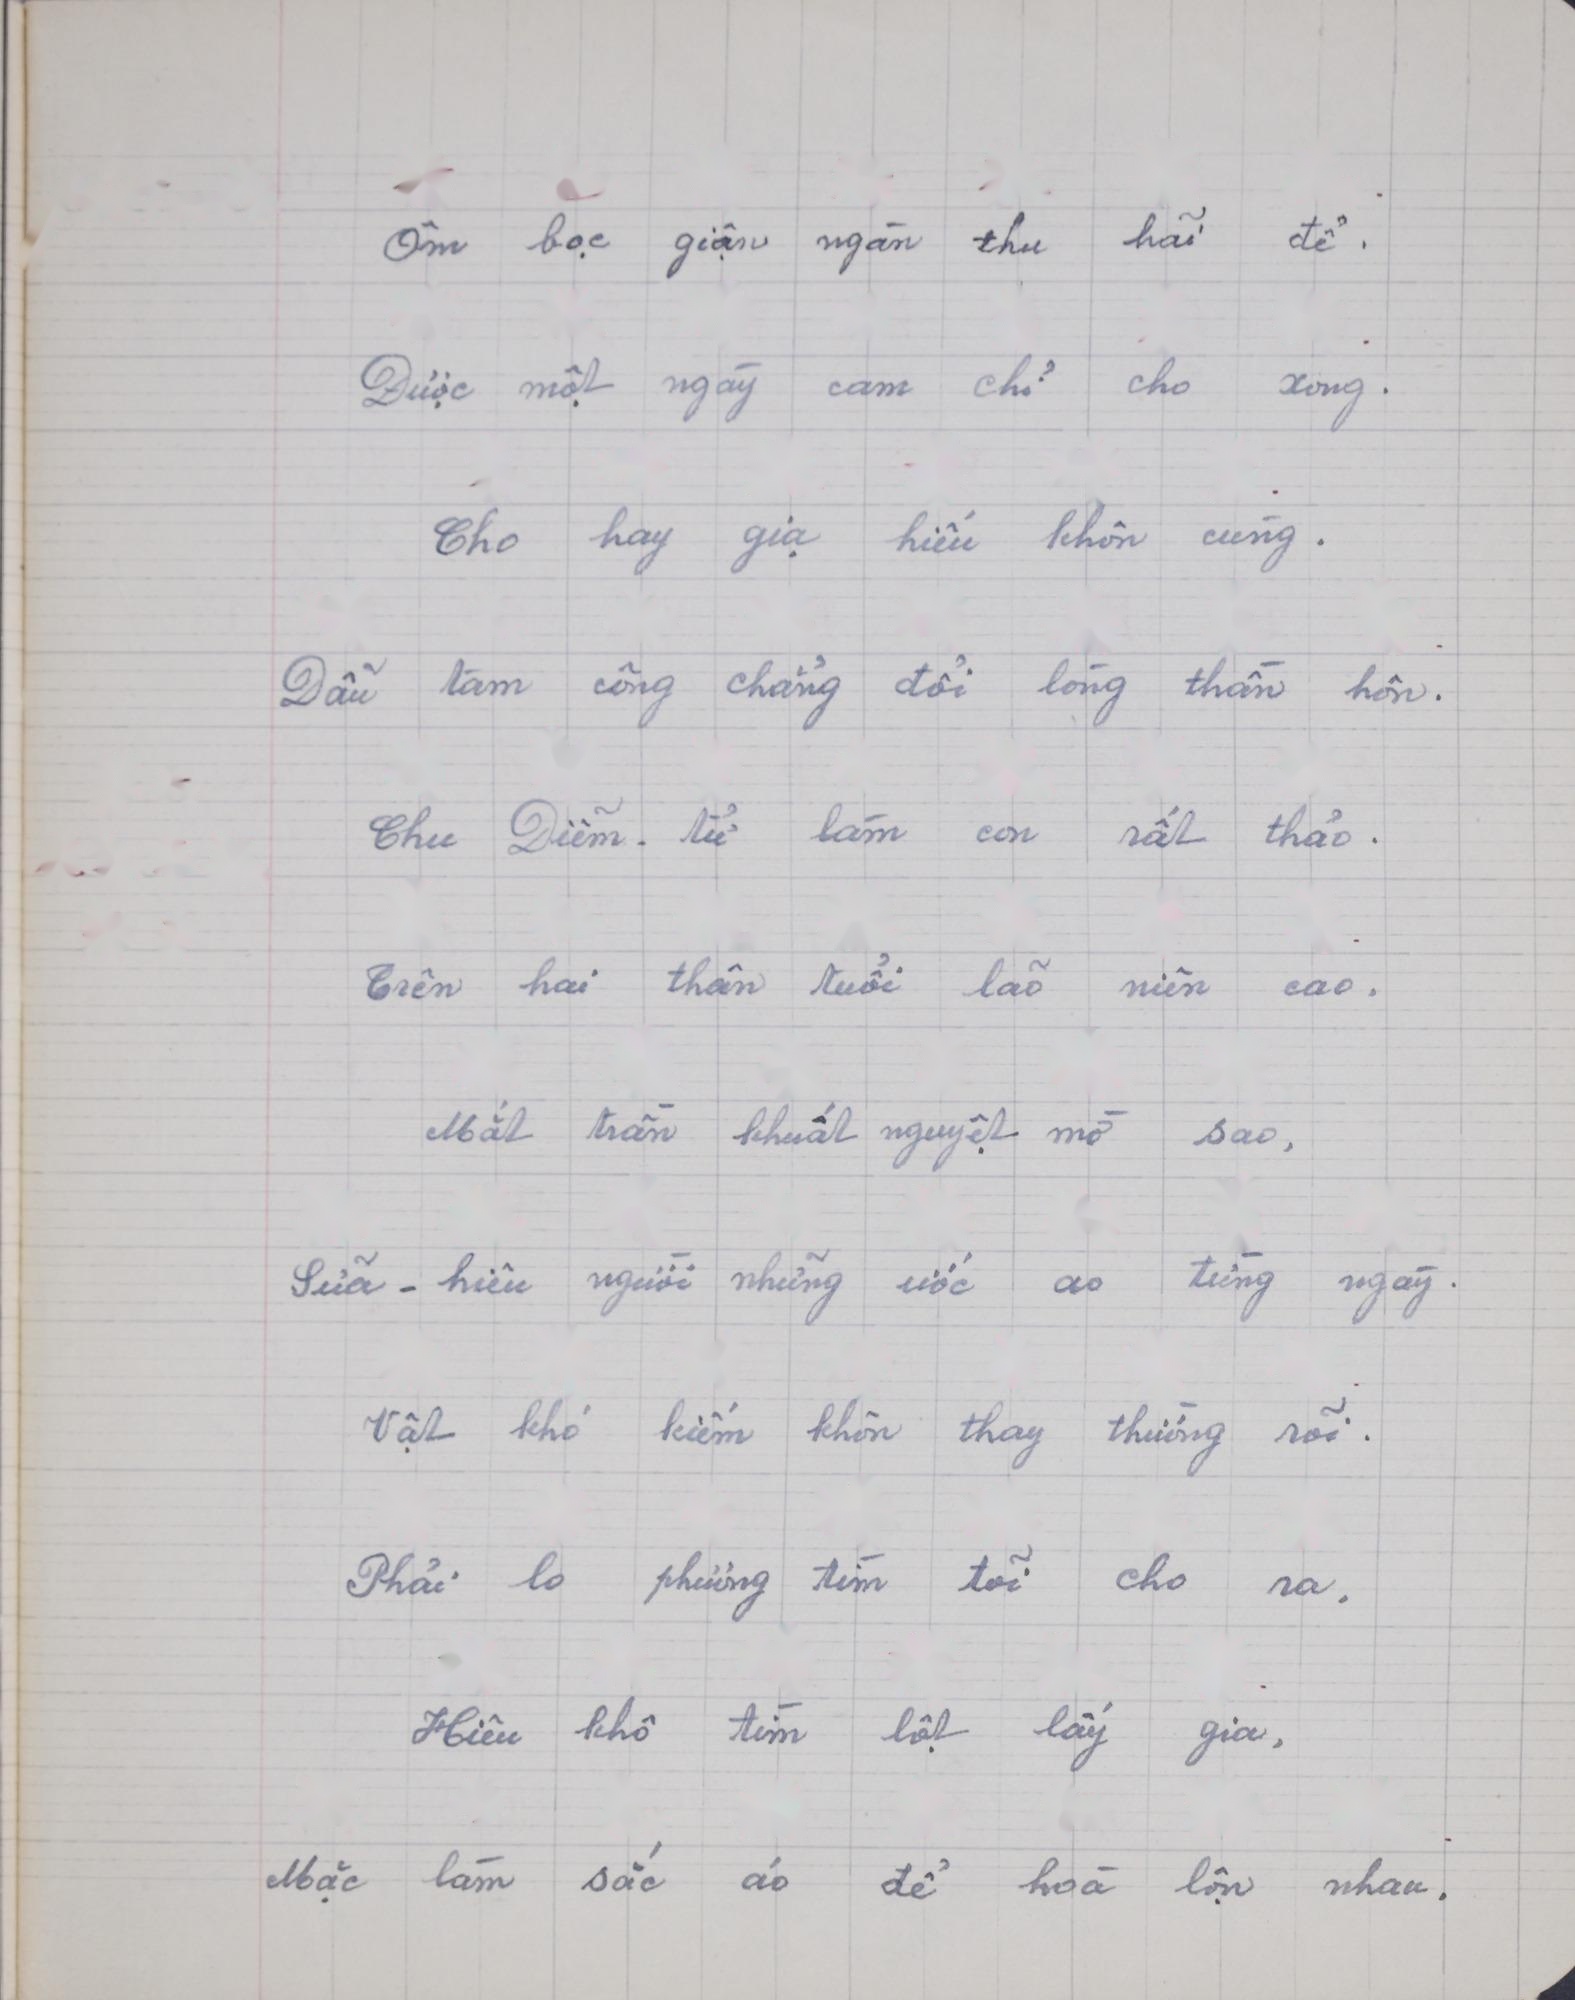 Ôm bọc giận ngàn thu hãi để.
Được một ngày cam chỉ cho xong.
Cho hay giạ hiếu khôn cùng.
Dẫu tam công chẳng đổi lòng thần hôn.
Chu Diễm-tử làm con rất thảo.
Trên hai thân tuổi lão niên cao.
Mắt trần khuất nguyệt mờ sao,
Sữa-hiêu người những ước ao từng ngày.
Vật khó kiếm khôn thay thường rỗi.
Phải lo phương tìm tõi cho ra,
Hiêu khô tìm lột lấy gia,
Mặc làm sắc áo để hoà lộn nhau.